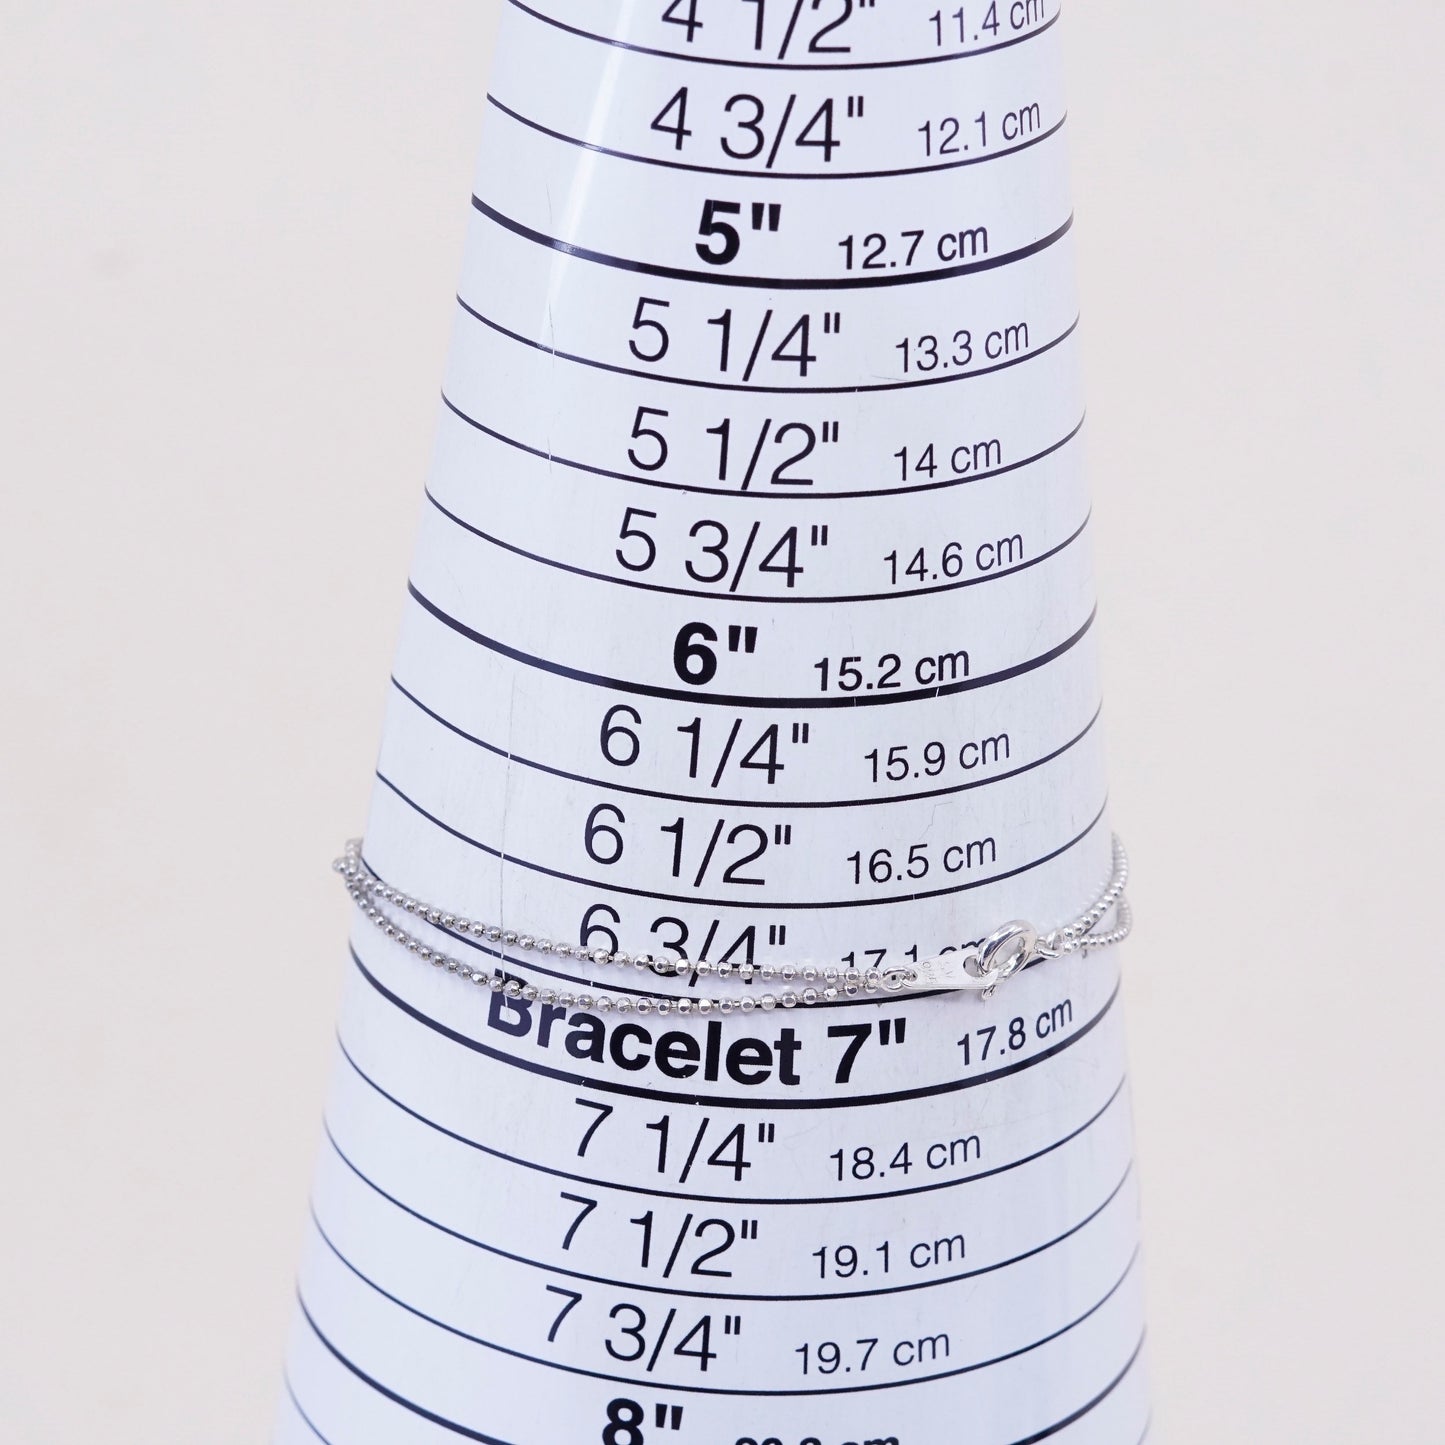 4 1/2" 11.4 cm
4 3/4" 12.1 cm
5" 12.7 cm
5 1/4" 13.3 cm
5 1/2" 14 cm
5 3/4" 14.6 cm
6" 15.2 cm
6 1/4" 15.9 cm
6 1/2" 16.5 cm
6 3/4" 17.1 cm
Bracelet 7" 17.8 cm
7 1/4" 18.4 cm
7 1/2" 19.1 cm
7 3/4" 19.7 cm
8"